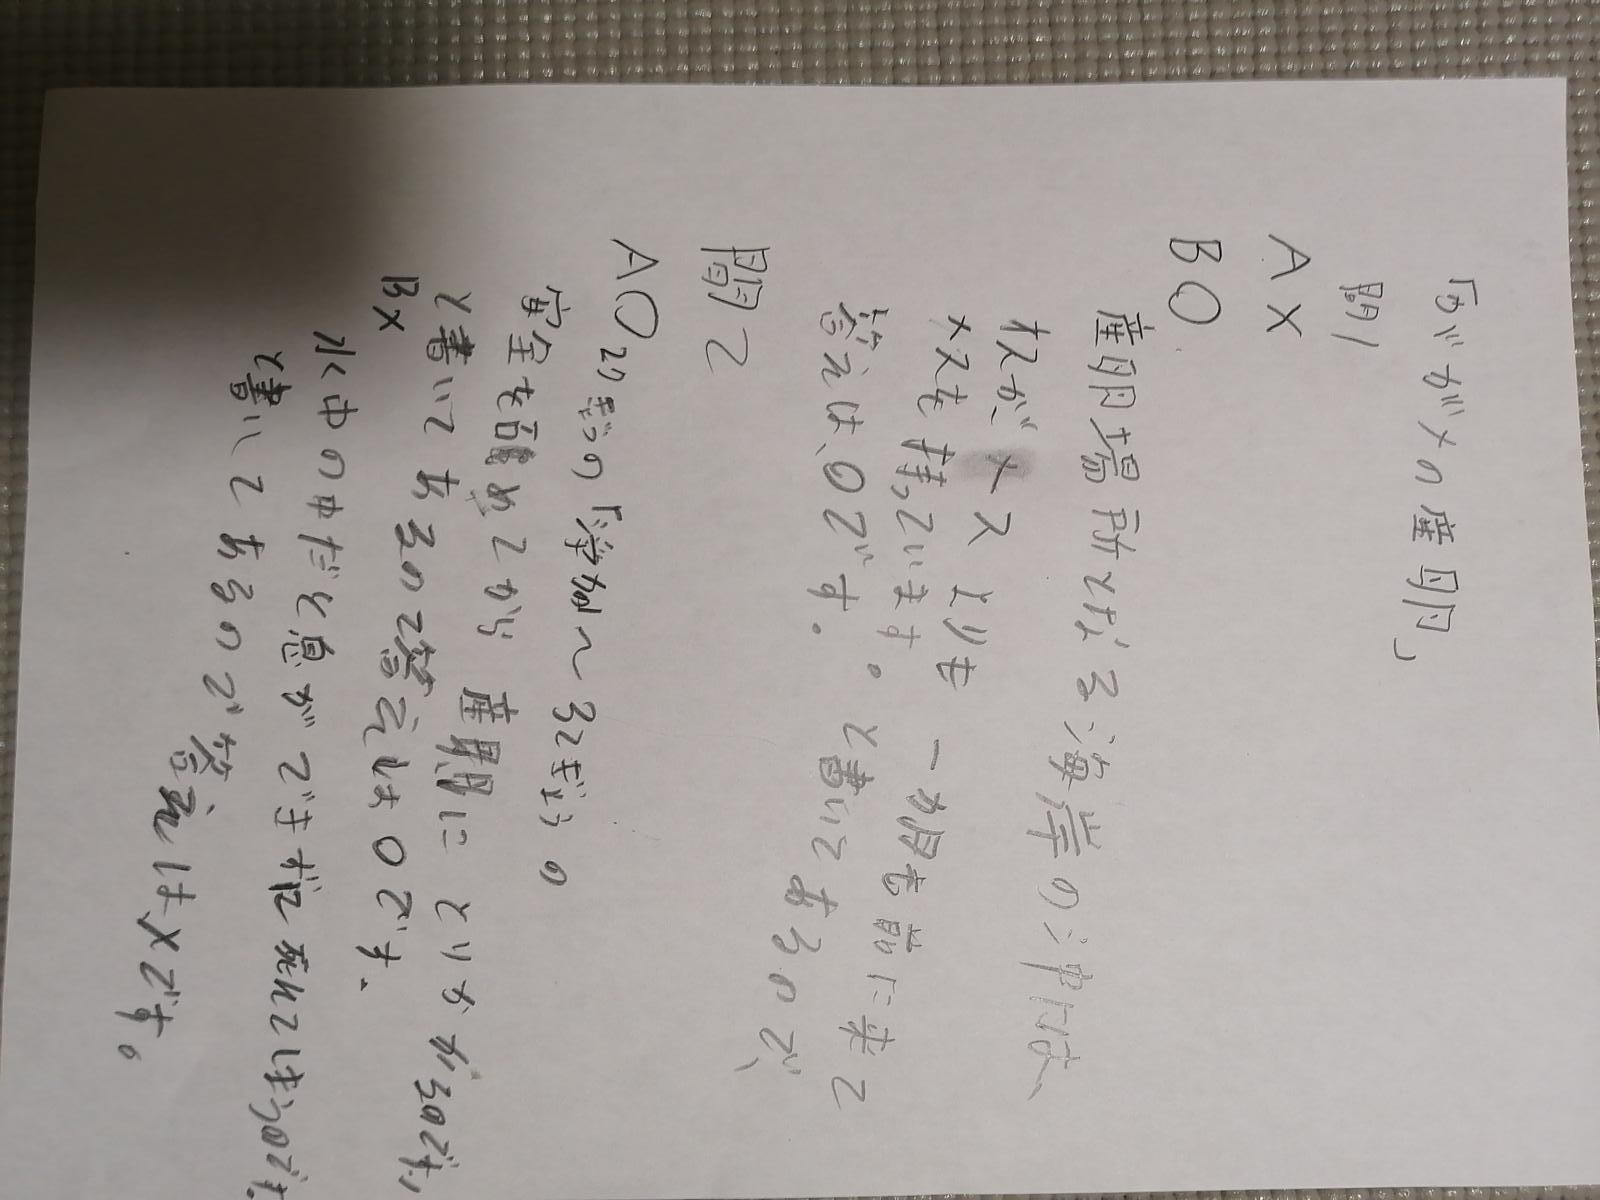 「ウミガメの産卵」
問1
A×
B○
産卵場所となる海岸の沖には、
オスがメスよりも一か月も前に来て
メスを待っています。と書いてあるので、
答えは、○です。
問2
A○ 20行きめの「浮かん〜32ぎょうの
安全を確めてから産卵にとりかかるのです」
と書いてあるので答えは○です。
B×
水中の中だと息ができずに死んでしまうのです。
と書いてあるので答えは×です。